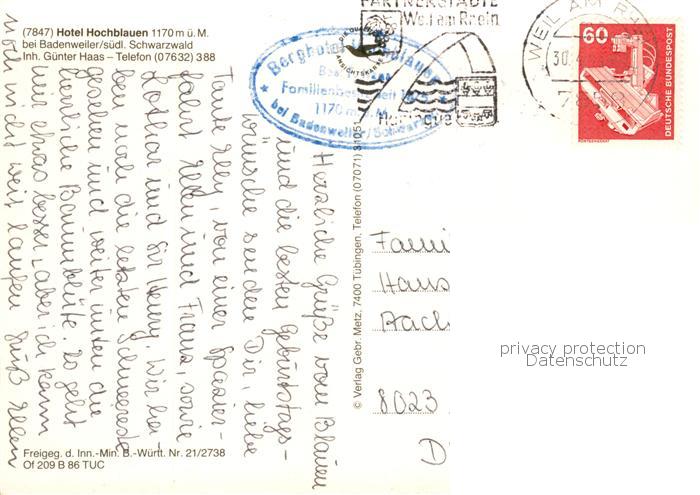 (7847) Hotel Hochblauen 1170 m ü. M.
bei Badenweiler/südl. Schwarzwald
Inh. Günter Haas – Telefon (07632) 388
Berghotel Blauen
Familienbe
1170 m ü. M.
bei Badenweiler/Schwarzw
DIE QUALI
ANSICHTSKARTE
PARTNERSTÄDTE
Weil am Rhein
Huningue
WEIL AM RH
30.
60
DEUTSCHE BUNDESPOST
RÖNTGENGERÄT
Herzliche Grüße vom Blauen
und die besten Geburtstags-
wünsche senden Dir, liebe
Tante Elly, von einer Spazier-
fahrt Ellen und Franz, sowie
Lothar und Henny. Wir ha-
ben noch die letzten Schneereste
gesehen und weiter unten die
herrliche Baumblüte. Es geht
mir etwas besser, aber ich kann
noch nicht weit laufen Gruß Ellen
© Verlag Gebr. Metz, 7400 Tübingen, Telefon (07071) 31051
Fami
Hans
Bach
8023
D
privacy protection
Datenschutz
Freigeg. d. Inn.-Min. B.-Württ. Nr. 21/2738
Of 209 B 86 TUC